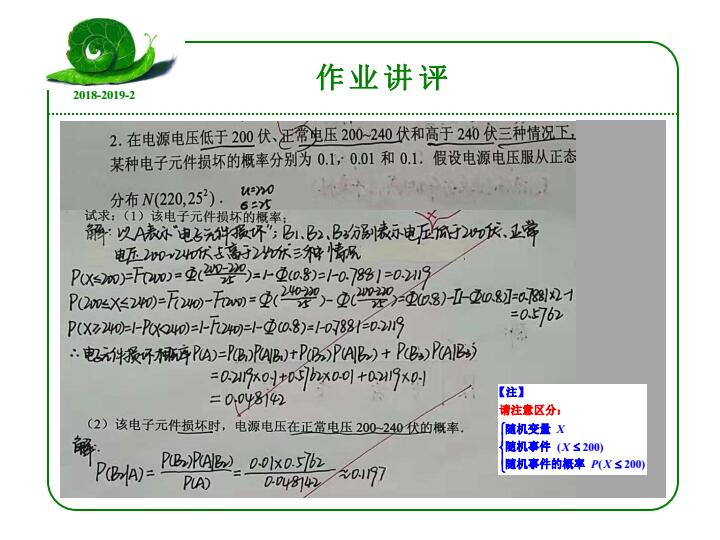 作业讲评
2018-2019-2
2. 在电源电压低于 200 伏、正常电压 200~240 伏和高于 240 伏三种情况下,
某种电子元件损坏的概率分别为 0.1, 0.01 和 0.1. 假设电源电压服从正态
分布 N(220,25²). u=220
σ=25
试求:(1)该电子元件损坏的概率;
解: 以A表示"电子元件损坏"; B1、B2、B3分别表示电压低于200伏、正常
电压200~240伏与高于240伏三种情况
P(X≤200)=F(200)=Φ(200-220/25)=1-Φ(0.8)=1-0.7881=0.2119
P(200≤X≤240)=F(240)-F(200)=Φ(240-220/25)-Φ(200-220/25)=Φ(0.8)-[1-Φ(0.8)]=0.7881×2-1
=0.5762
P(X≥240)=1-P(X<240)=1-F(240)=1-Φ(0.8)=1-0.7881=0.2119
∴电子元件损坏概率P(A)=P(B1)P(A|B1)+P(B2)P(A|B2)+P(B3)P(A|B3)
=0.2119×0.1+0.5762×0.01+0.2119×0.1
=0.048142
(2)该电子元件损坏时,电源电压在正常电压 200~240 伏的概率.
解:
P(B2|A)=P(B2)P(A|B2)/P(A)=0.01×0.5762/0.048142≈0.1197
【注】
请注意区分:
随机变量 X
随机事件 (X≤200)
随机事件的概率 P(X≤200)